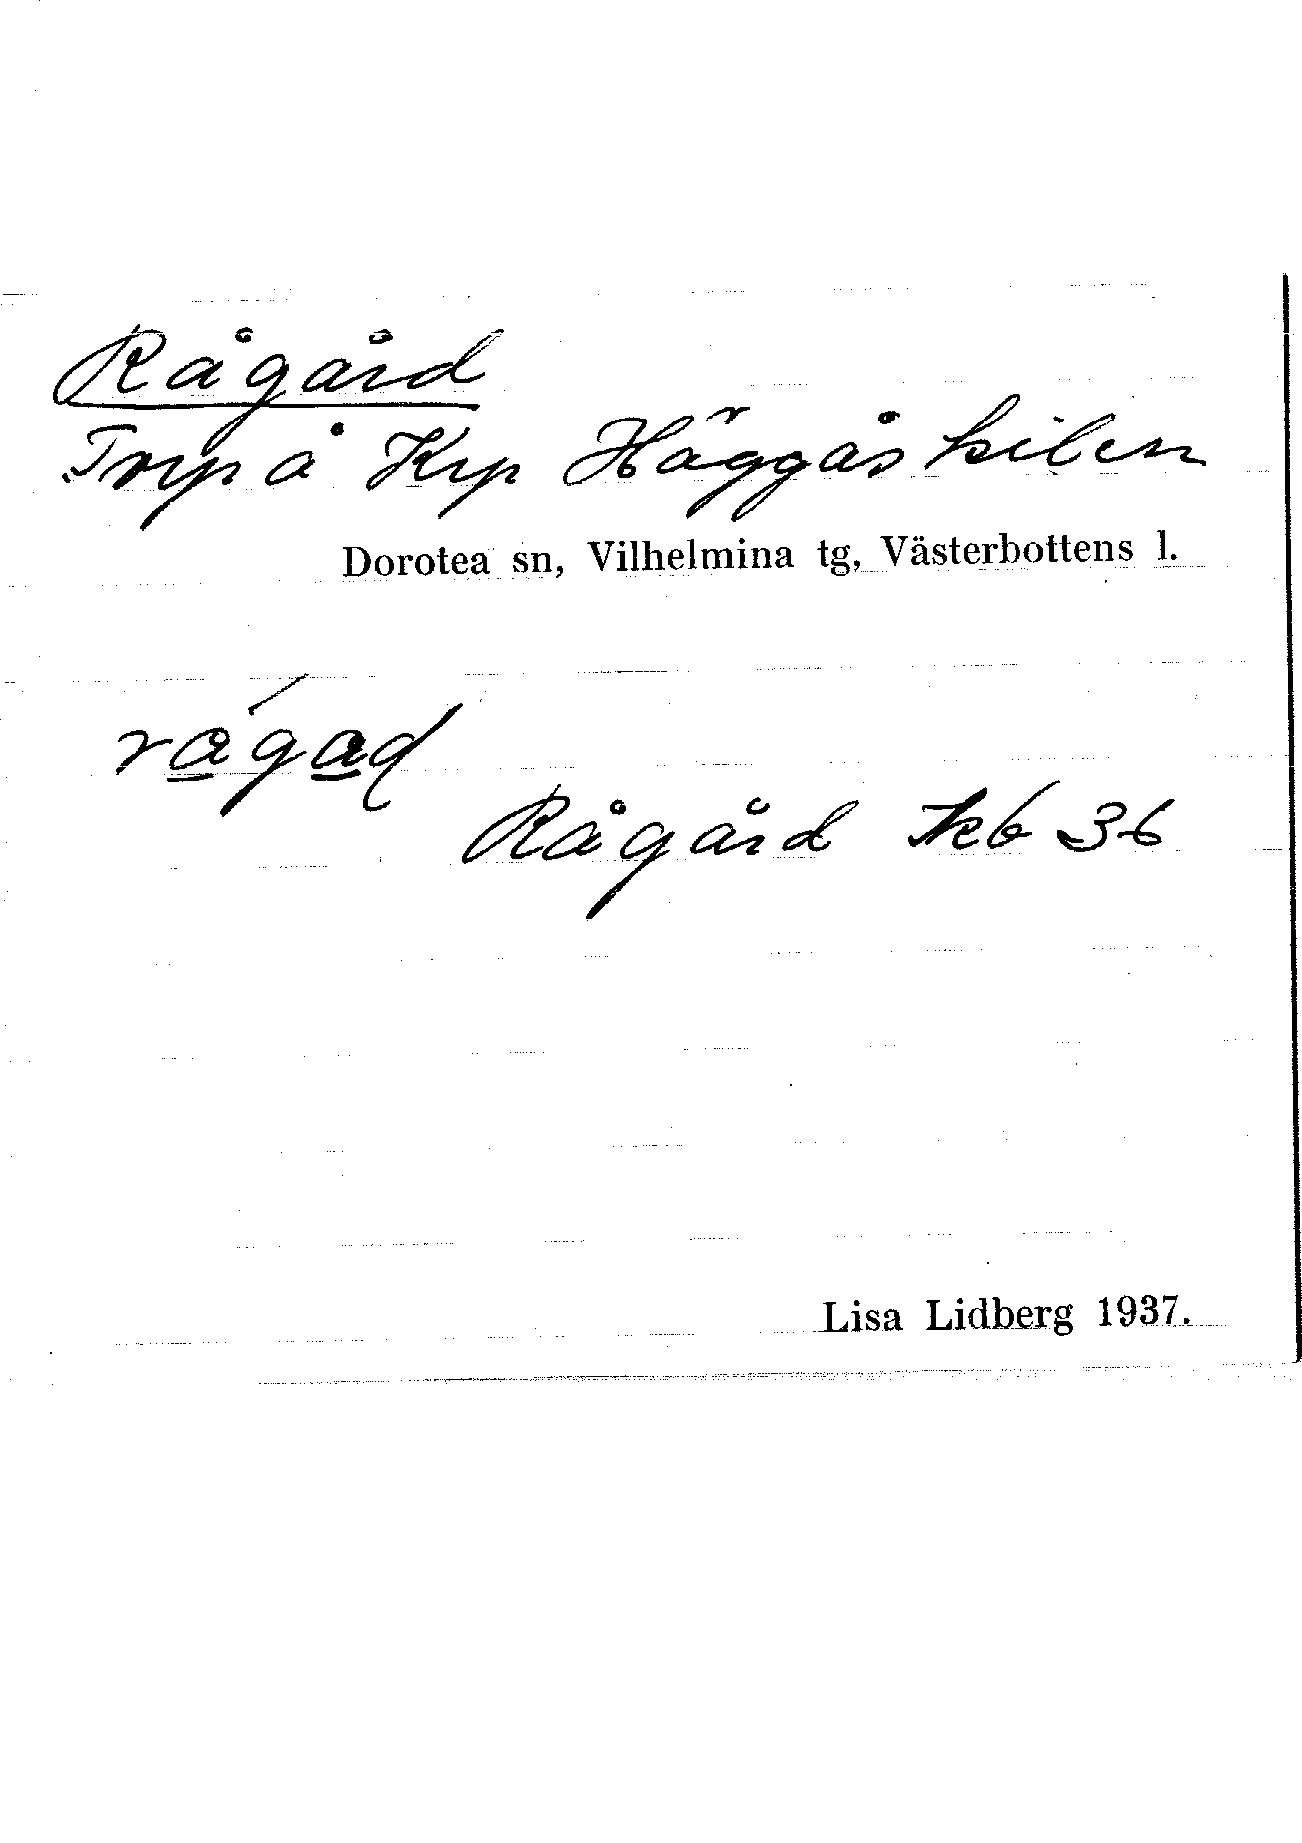 Rågård
Trp å Krp Häggås kilen
Dorotea sn, Vilhelmina tg, Västerbottens l.
rágad
Rågård Jkb 36
Lisa Lidberg 1937.